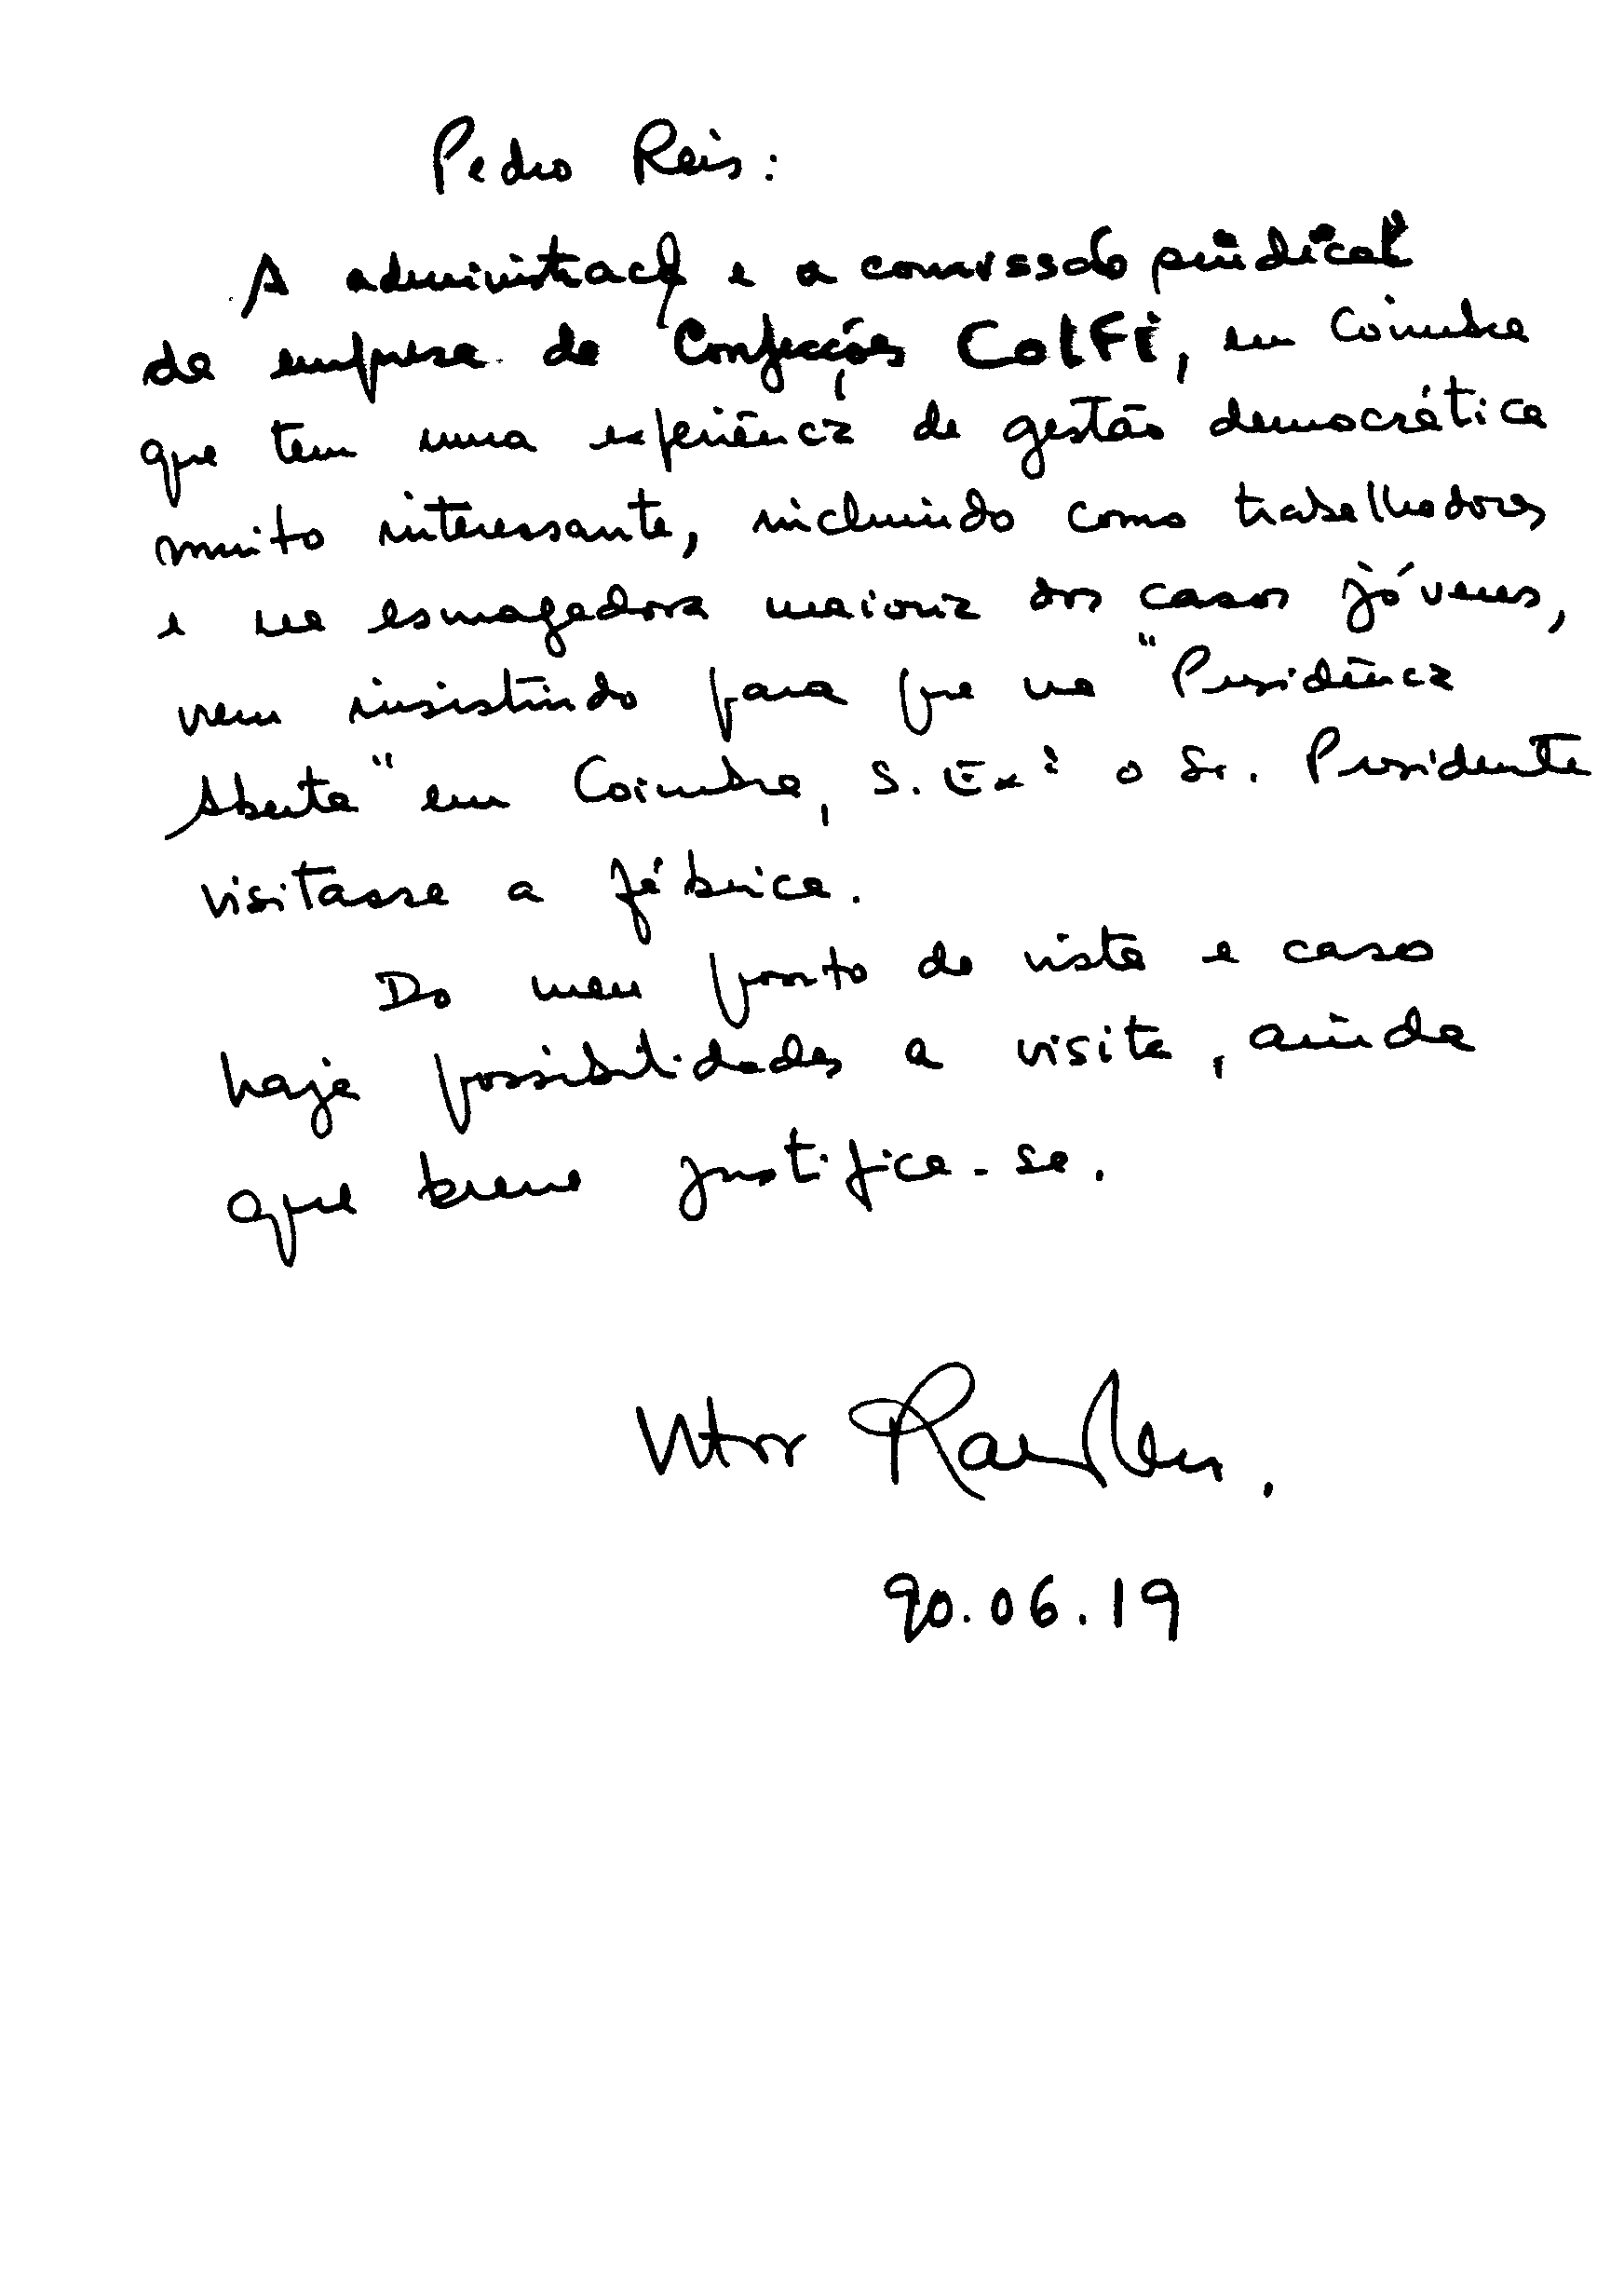 Pedro Reis:
A administração e a comissão sindical
da empresa de Confecções ColFi, em Coimbra
que tem uma experiência de gestão democrática
muito interessante, incluindo como trabalhadores
e na esmagadora maioria dos casos jóvens,
vem insistindo para que na "Presidência
Aberta" em Coimbra, S. Exª o Sr. Presidente
visitasse a fábrica.
Do meu ponto de vista e caso
haja possibilidades a visita, ainda
que breve justifica-se.
Vítor
90.06.19